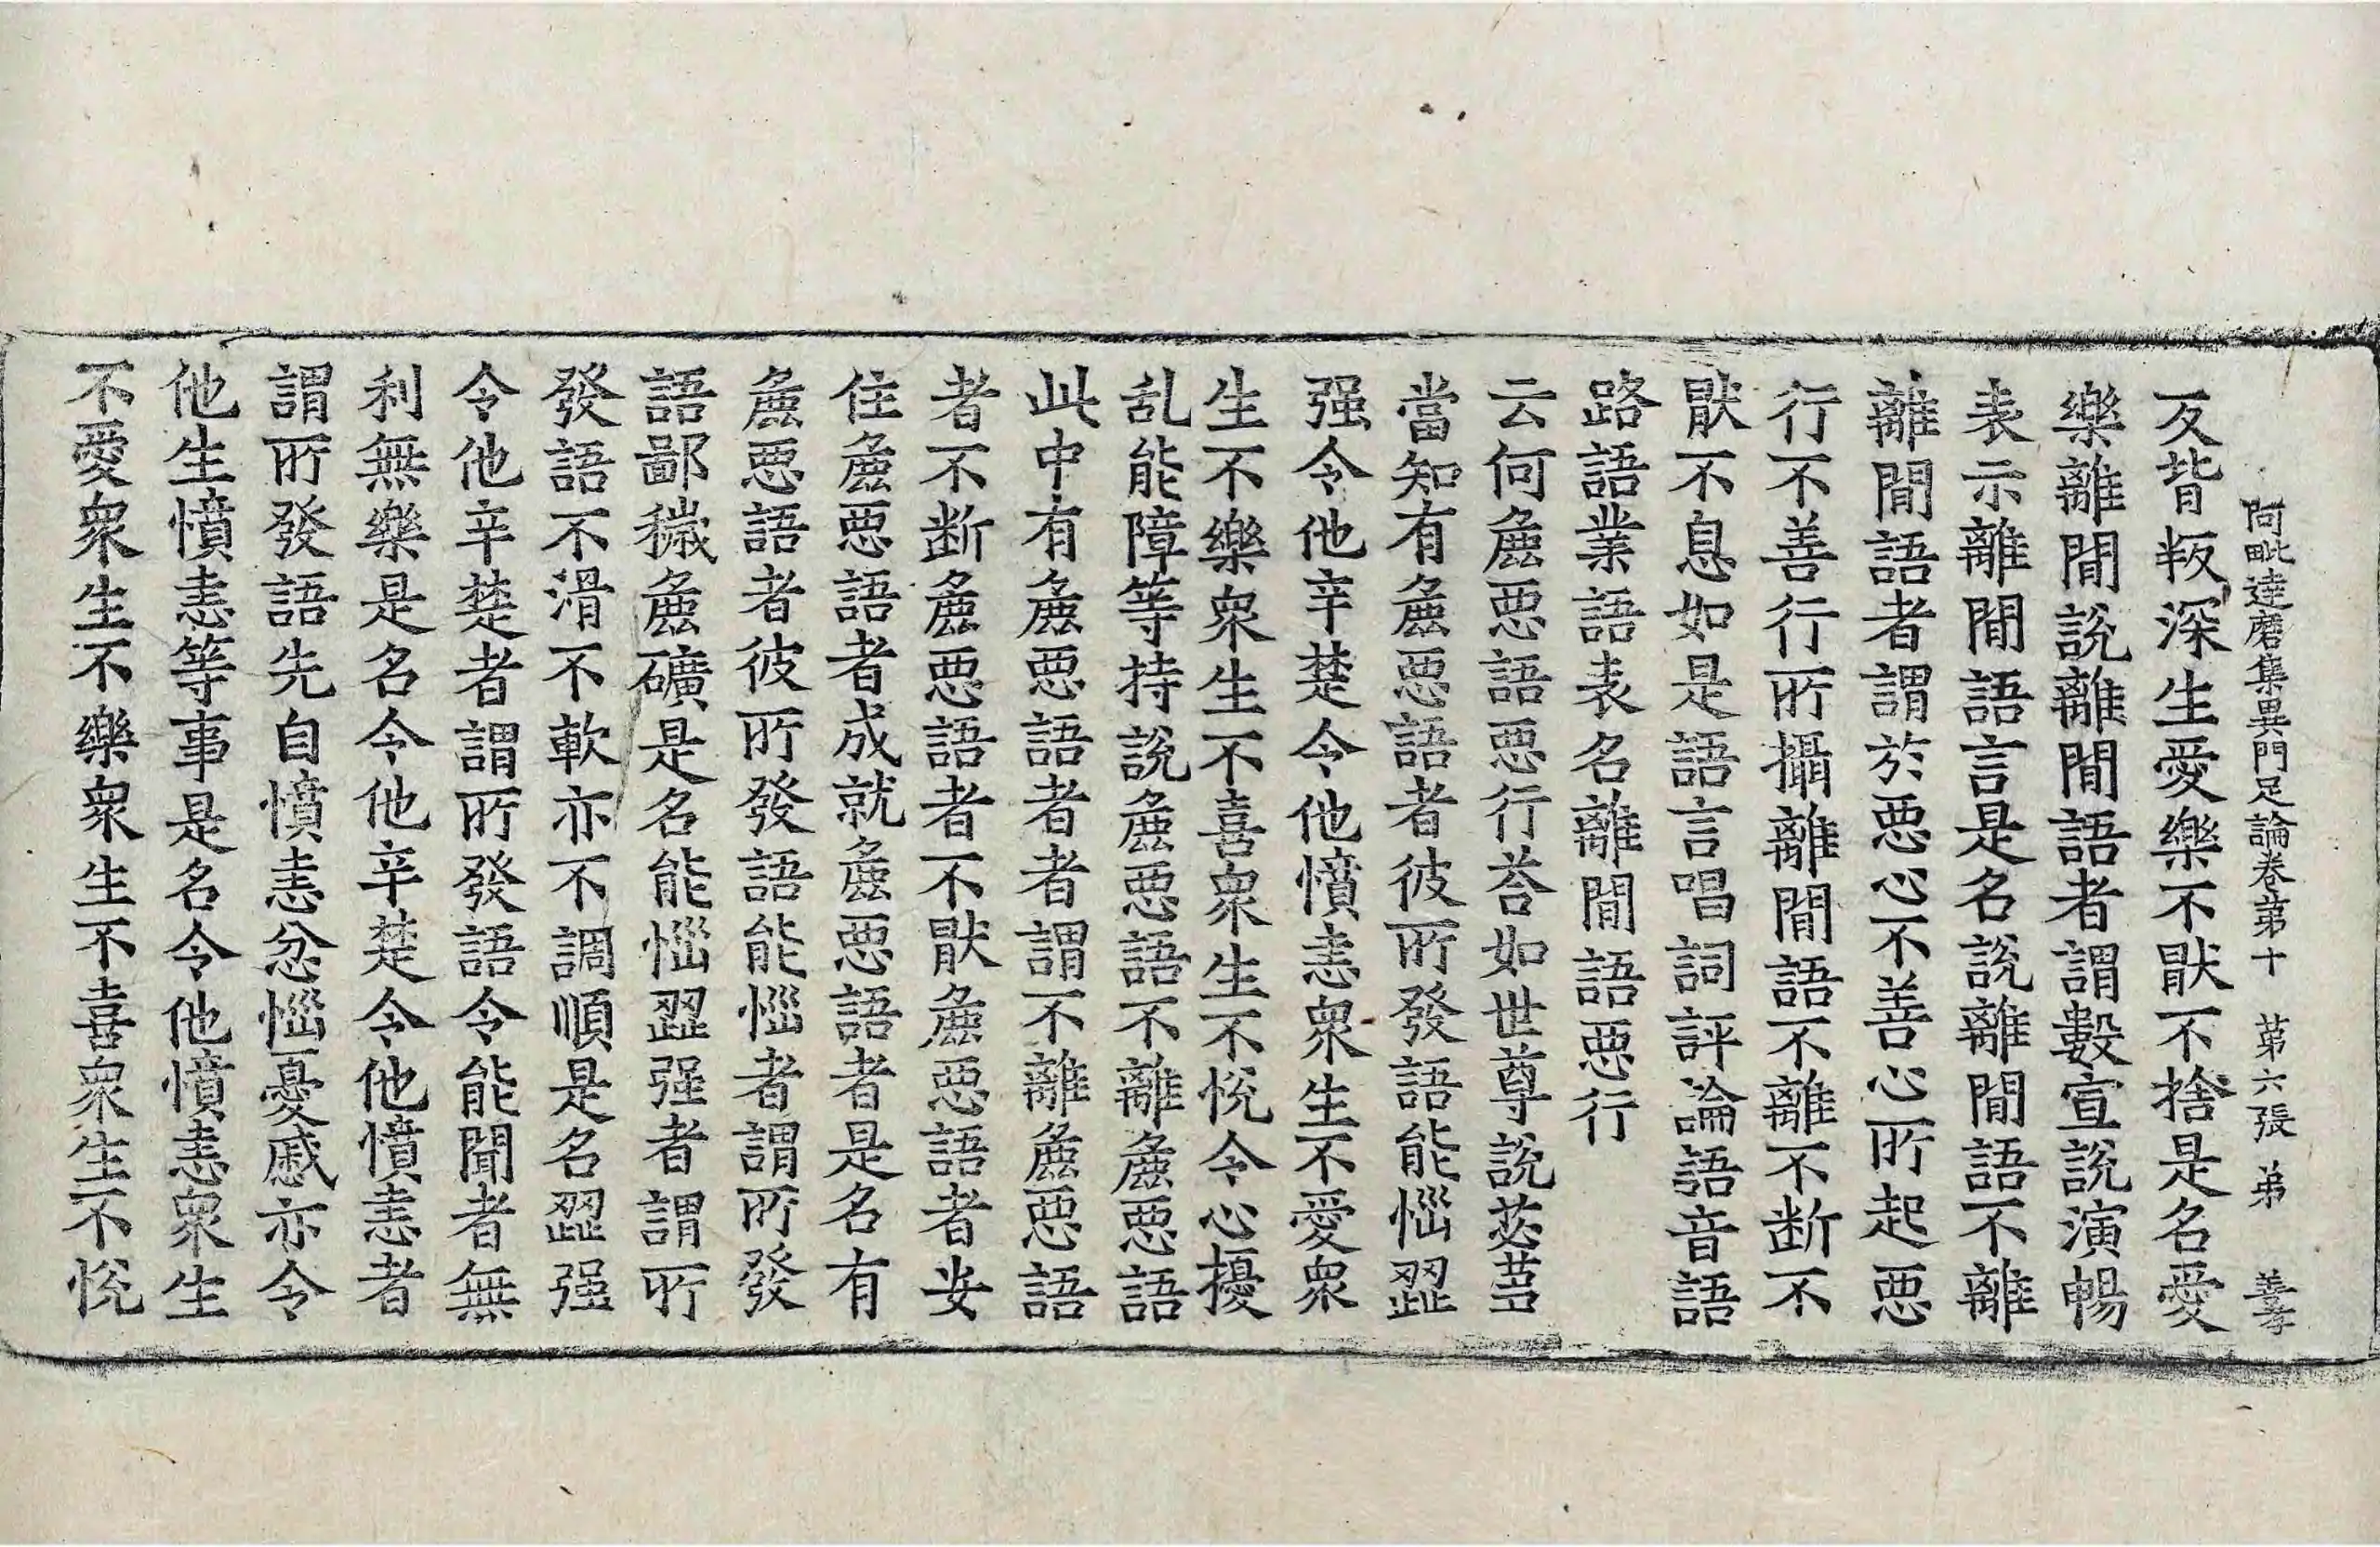 阿毗達磨集異門足論卷第十 第六張 弟 善孝
反背叛深生愛樂不猒不捨是名愛
樂離閒說離閒語者謂數宣說演暢
表示離閒語言是名說離閒語不離
離閒語者謂於惡心不善心所起惡
行不善行所攝離閒語不離不断不
猒不息如是語言唱詞評論語音語
路語業語表名離閒語惡行
云何麁惡語惡行荅如世尊說苾芻
當知有麁惡語者彼所發語能惱澀
强令他辛楚令他憤恚衆生不愛衆
生不樂衆生不喜衆生不悅令心擾
乱能障等持說麁惡語不離麁惡語
此中有麁惡語者者謂不離麁惡語
者不断麁惡語者不猒麁惡語者安
住麁惡語者成就麁惡語者是名有
麁惡語者彼所發語能惱者謂所發
語鄙穢麁礦是名能惱澀强者謂所
發語不滑不軟亦不調順是名澀强
令他辛楚者謂所發語令能聞者無
利無樂是名令他辛楚令他憤恚者
謂所發語先自憤恚忿惱憂慼亦令
他生憤恚等事是名令他憤恚衆生
不愛衆生不樂衆生不喜衆生不悅